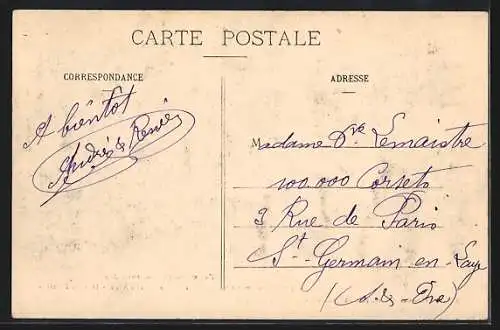 CARTE POSTALE
CORRESPONDANCE
ADRESSE
A bientôt
André & Renée
Madame Vve Lemaistre
100.000 Corsets
3 Rue de Paris
St-Germain en-Laye
(S.-&-Oise)